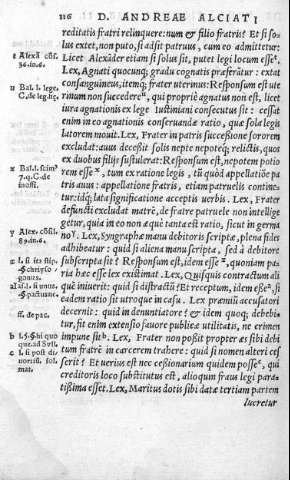 116 D. ANDREAE ALCIATI
reditatis fratri relinquere: num & filio fratris? Et si so-
lus extet, non puto, si adsit patruus, cum eo admittetur:
t Alexã cõs. Licet Alexãder etiam si solus sit, putet legi locum esseᵗ.
Lex, Agnati quocunq; gradu cognatis præferãtur: extat
consanguineus, itemq; frater uterinus: Responsum est ute
u Bal. l. lege. rinum non succedereᵘ, qui propriè agnatus non est, licet
C. de leg. hę. iura agnationis ex lege Iustiniani consecutus sit: cessat
enim in eo agnationis conseruandæ ratio, quæ sola legis
latorem mouit. Lex, Frater in patris successione sororem
excludat: auus decessit solis nepte nepoteq; relictis, quos
ex duobus filijs sustulerat: Responsum est, nepotem potio
rem esseˣ, tum ex ratione legis, tũ quòd appellatiõe pa
7.q. C. de tris auus: appellatione fratris, etiam patruelis contine-
inoffi. tur: idq; lata significatione acceptis uerbis. Lex, Frater
defuncti excludat matrẽ, de fratre patruele non intellige
getur, quia in eo non æquè tanta est ratio, sicut in germa
y Alex. cõs. noʸ. Lex, Syngraphæ manu debitoris scriptæ, plena fides
adhibeatur: quid si aliena manu scripta, sed à debitore
subscripta sit? Responsum est, idem esseᶻ, quoniam pa
ria hæc esse lex existimat. Lex, Quisquis contractum ali
què iniuerit: quid si distractũ? Et receptum, idem esseᵃ, si
eadem ratio sit utroque in casu. Lex præmiũ accusatori
ff. de pac. decernit: quid in denuntiatore? & idem quoq; debebi-
tur, sit enim extensio fauore publicæ utilitatis, ne crimen
impune sitᵇ. Lex, Frater non possit propter æs sibi debi
tum fratrẽ in carcerem trahere: quid si nomen alteri ces
serit? Et uerius est nec cessionarium quidem posseᶜ, qui
creditoris loco substitutus est, alioquin fraus legi para-
tissima esset. Lex, Maritus dotis sibi datæ tertiam partem
lucretur